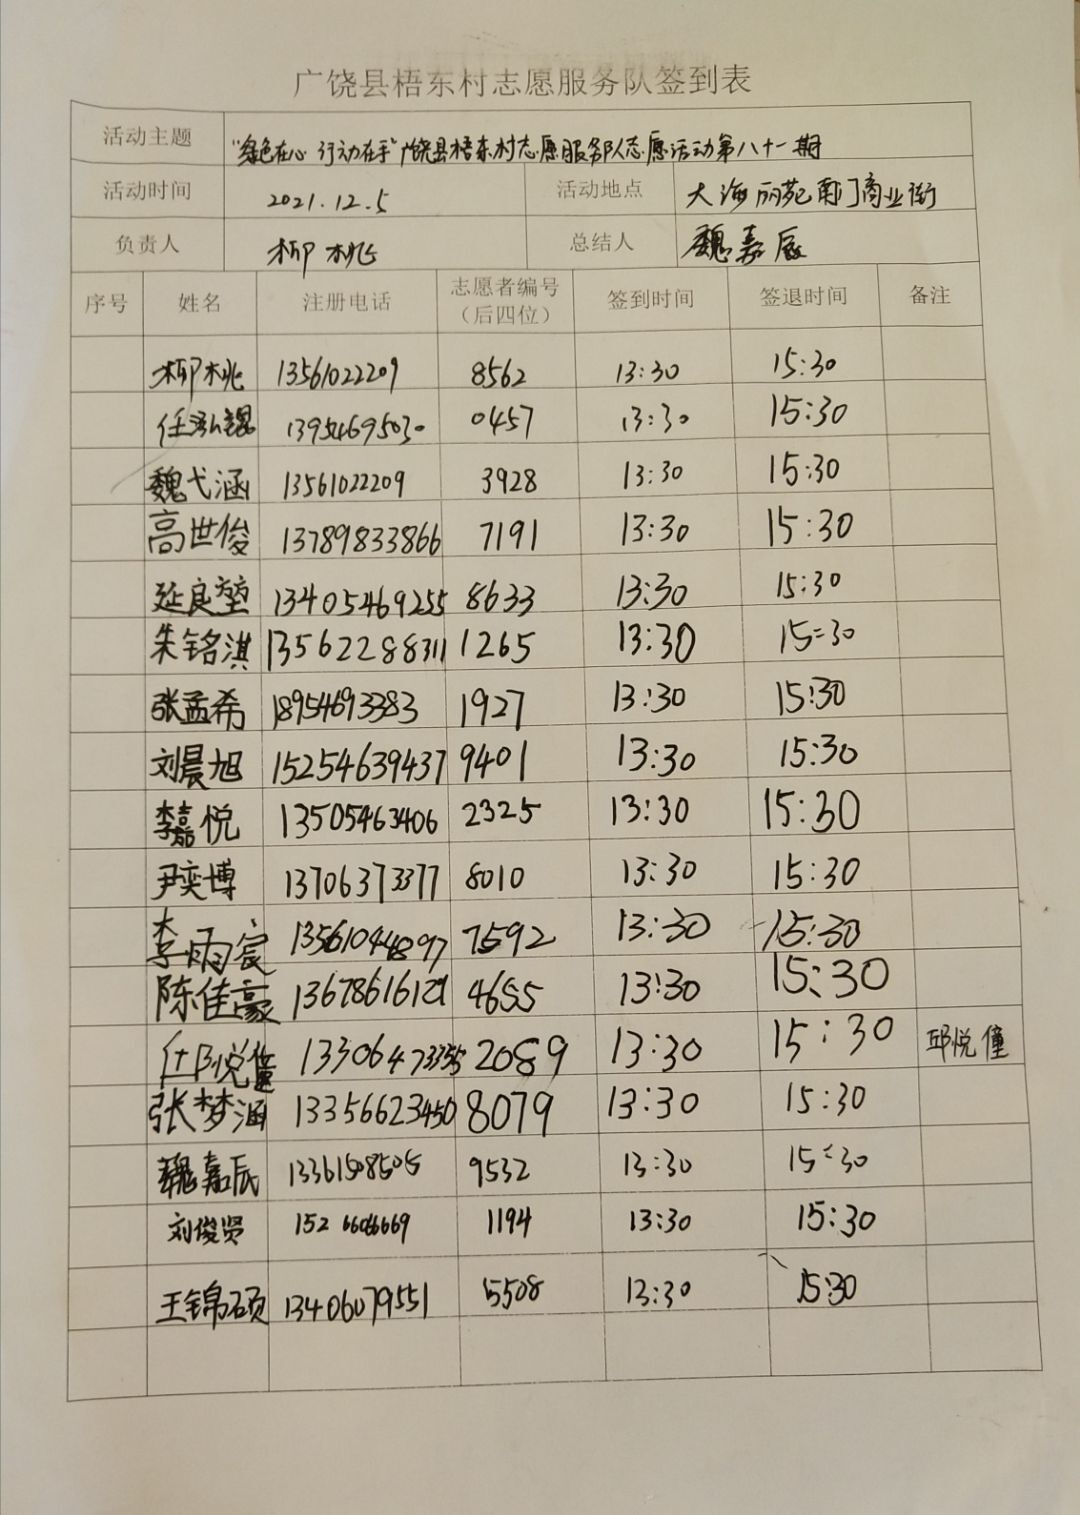 广饶县梧东村志愿服务队签到表
活动主题 "绿色在心 行动在手"广饶县梧东村志愿服务队志愿活动第八十一期
活动时间 2021.12.5 活动地点 大海丽苑南门商业街
负责人 柳桃 总结人 魏嘉辰
序号 姓名 注册电话 志愿者编号（后四位） 签到时间 签退时间 备注
柳桃 13561022209 8562 13:30 15:30
任泓锟 13954695030 0457 13:30 15:30
魏弋涵 13561022209 3928 13:30 15:30
高世俊 13789833866 7191 13:30 15:30
延良堃 13405469255 8633 13:30 15:30
朱铭淇 13562288311 1265 13:30 15:30
张孟希 18954693383 1927 13:30 15:30
刘晨旭 15254639437 9401 13:30 15:30
李嘉悦 13505463406 2325 13:30 15:30
尹奕博 13706373377 8010 13:30 15:30
李雨宸 13561044897 7592 13:30 15:30
陈佳豪 13678616121 4655 13:30 15:30
邱悦僮 13306473335 2089 13:30 15:30 邱悦僮
张梦涵 13356623450 8079 13:30 15:30
魏嘉辰 13361508505 9532 13:30 15:30
刘俊贤 15266066669 1194 13:30 15:30
王锦硕 13406079551 5508 13:30 15:30